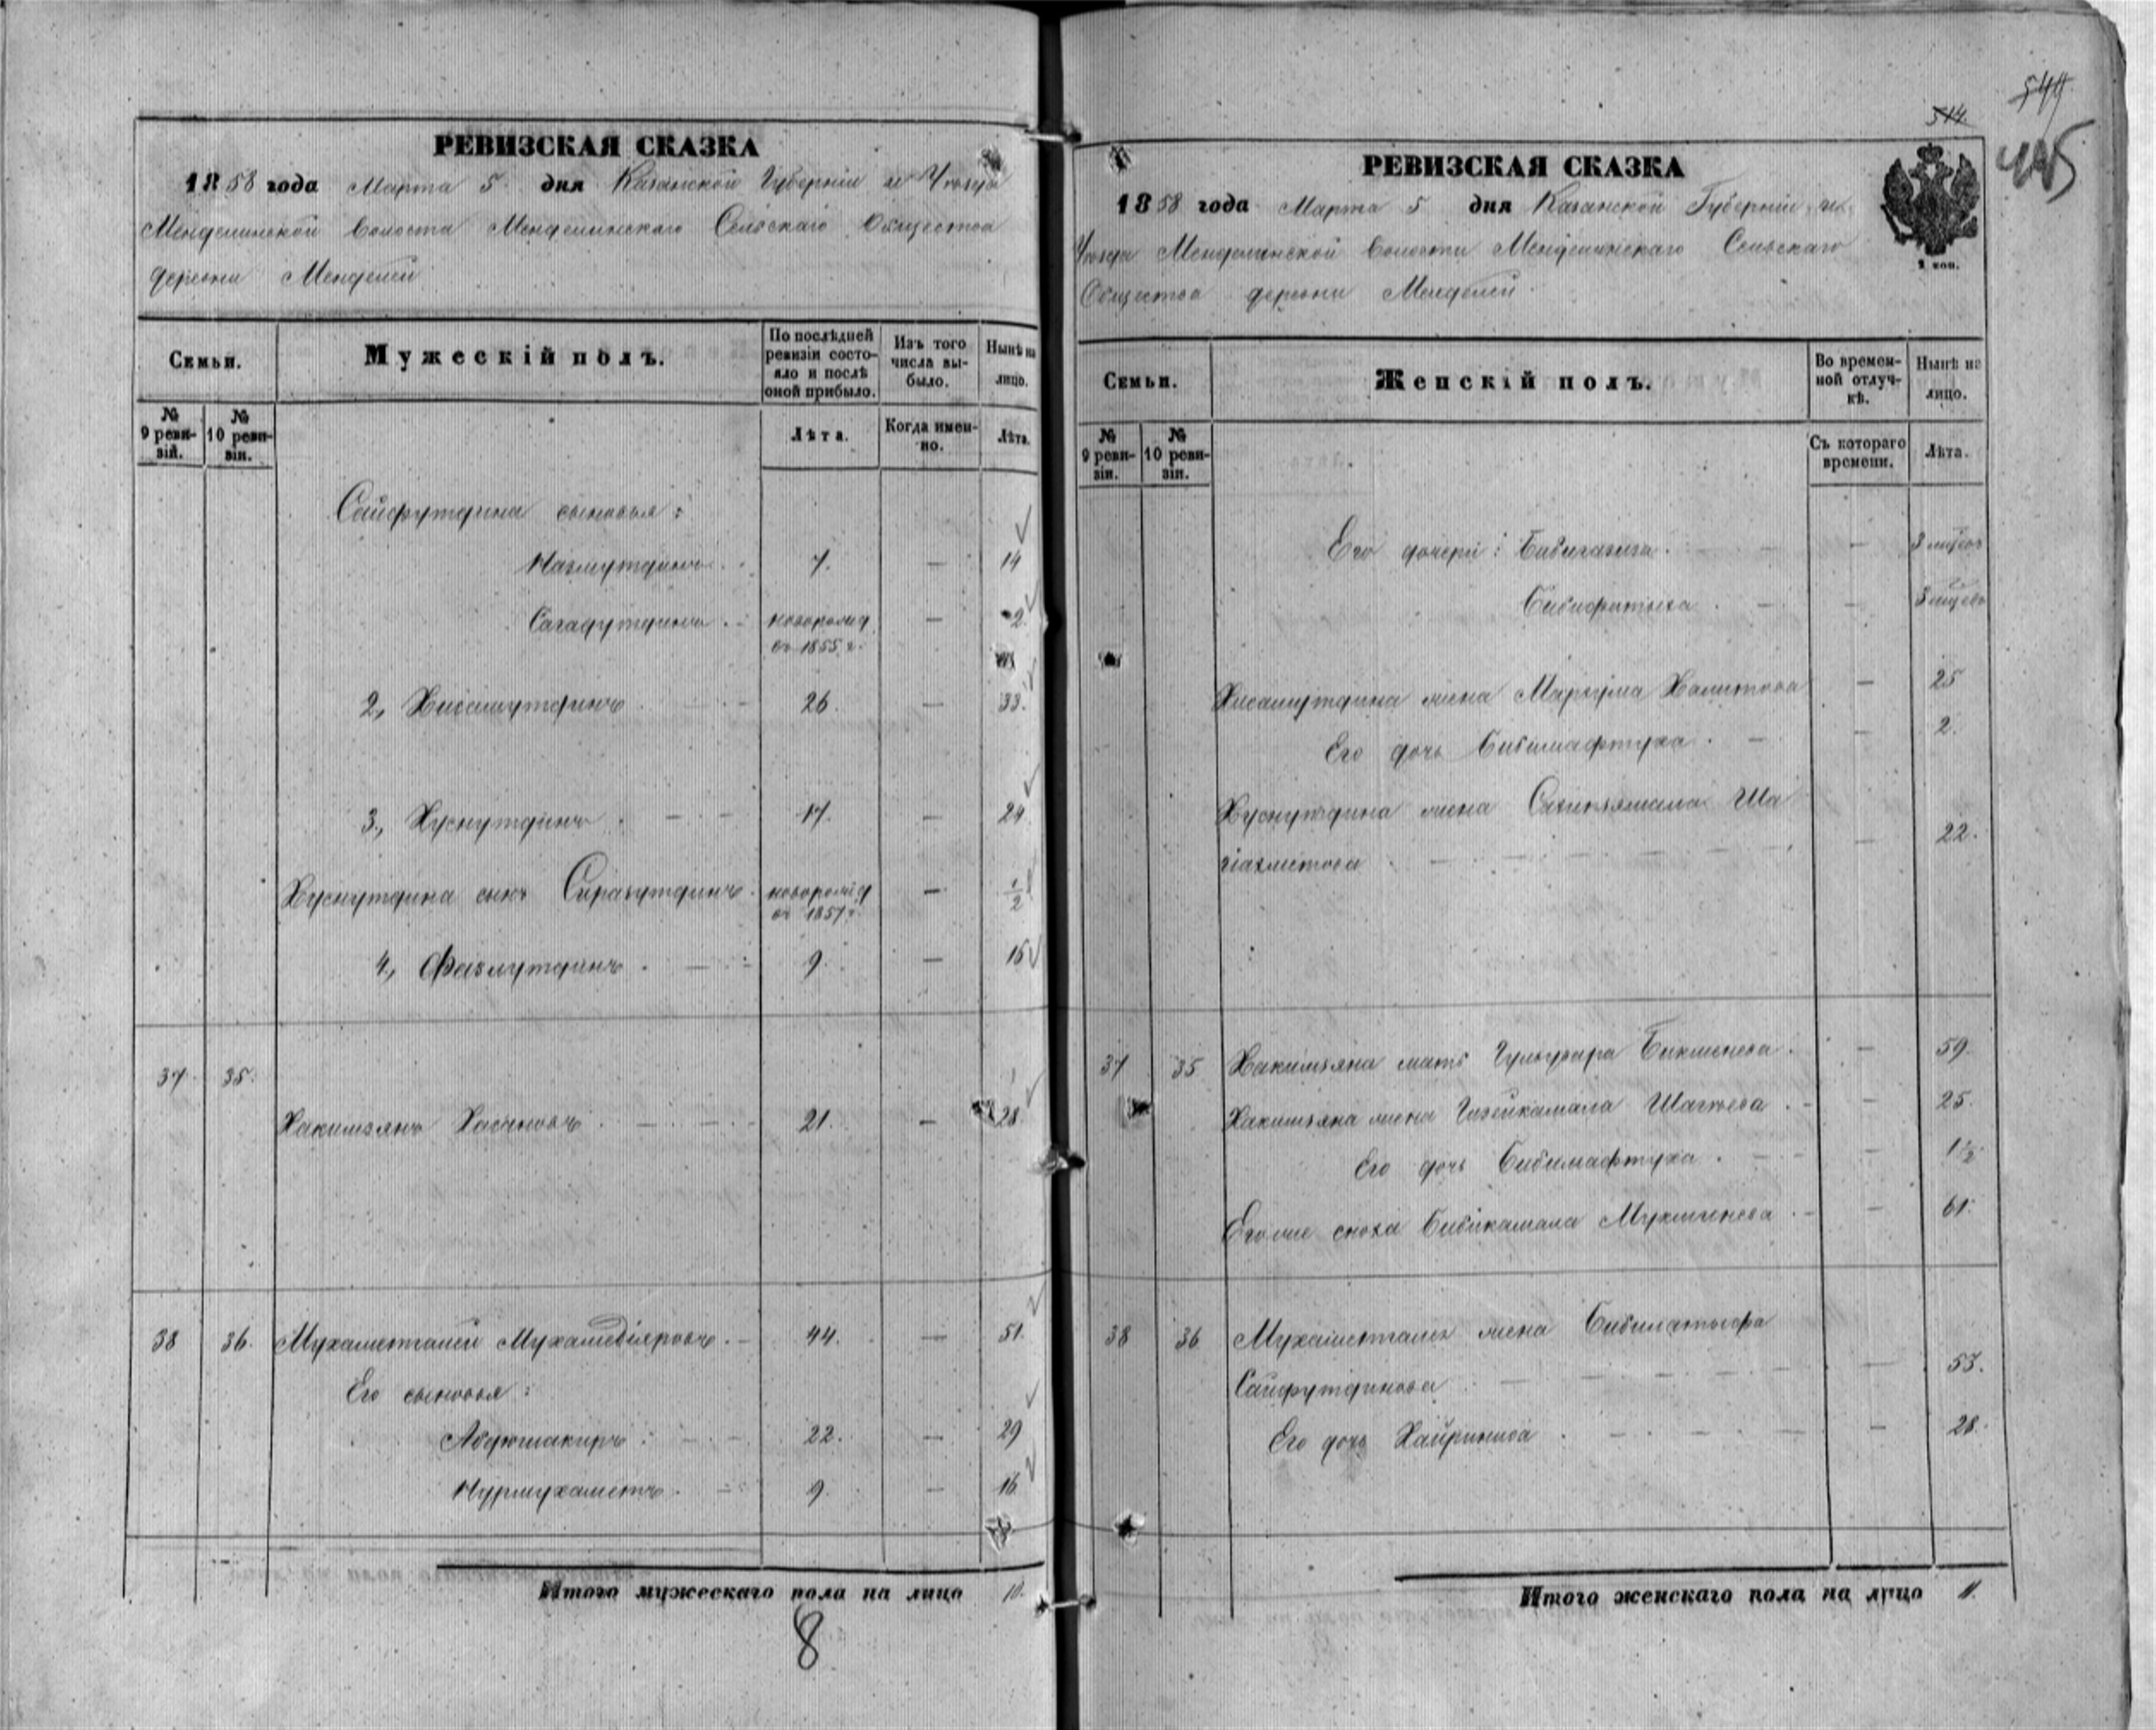 РЕВИЗСКАЯ СКАЗКА
1858 года Марта 5 дня Казанской Губерніи и Уѣзда
Менделинской волости Менделинскаго Сельскаго Общества
деревни Менделей
Семьи.
Мужескій полъ.
По послѣдней ревизіи состояло и послѣ оной прибыло.
Изъ того числа выбыло.
Нынѣ на лицо.
№ 9 ревизіи.
№ 10 ревизіи.
Лѣта.
Когда именно.
Лѣта.
Сайфутдина сыновья:
Назмутдинъ. 7. — 14
Сагадутдинъ. новорожд. — 2.
въ 1855 г.
2, Хисамутдинъ 26. — 33.
3, Хуснутдинъ 17. — 24
Хуснутдина сынъ Сиразутдинъ новорожд — 1/2
въ 1857 г.
4, Фазлутдинъ 9. — 16
37 35.
Хакимзянъ 21. — 28.
38 36. Мухаметгалей Мухамедіяровъ. 44. — 51.
Его сыновья:
Абдюшакиръ 22. — 29
Нурмухаметъ 9. — 16
Итого мужескаго пола на лицо 10.
8
544
514
415
РЕВИЗСКАЯ СКАЗКА
1858 года Марта 5 дня Казанской Губерніи и
Уѣзда Менделинской волости Менделинскаго Сельскаго
Общества деревни Менделей
2 коп.
Семьи.
Женскій полъ.
Во временной отлучкѣ.
Нынѣ на лицо.
№ 9 ревизіи.
№ 10 ревизіи.
Съ котораго времени.
Лѣта.
Его дочери: Бибигазиза. —
—
Хисамутдина жена Халитова — 25
Его дочь Бибимафтуха. — 2.
Хуснутдина жена Ша
— 22.
37 35 Хакимзяна мать — 59.
Хакимзяна жена — 25.
Его дочь Бибимафтуха. — 1 1/2
Его же сноха Бибикамала — 61.
38 36 Мухаметгалея жена
Сайфутдинова — 53.
Его дочь Хайриниса — 28.
Итого женскаго пола на лицо 11.